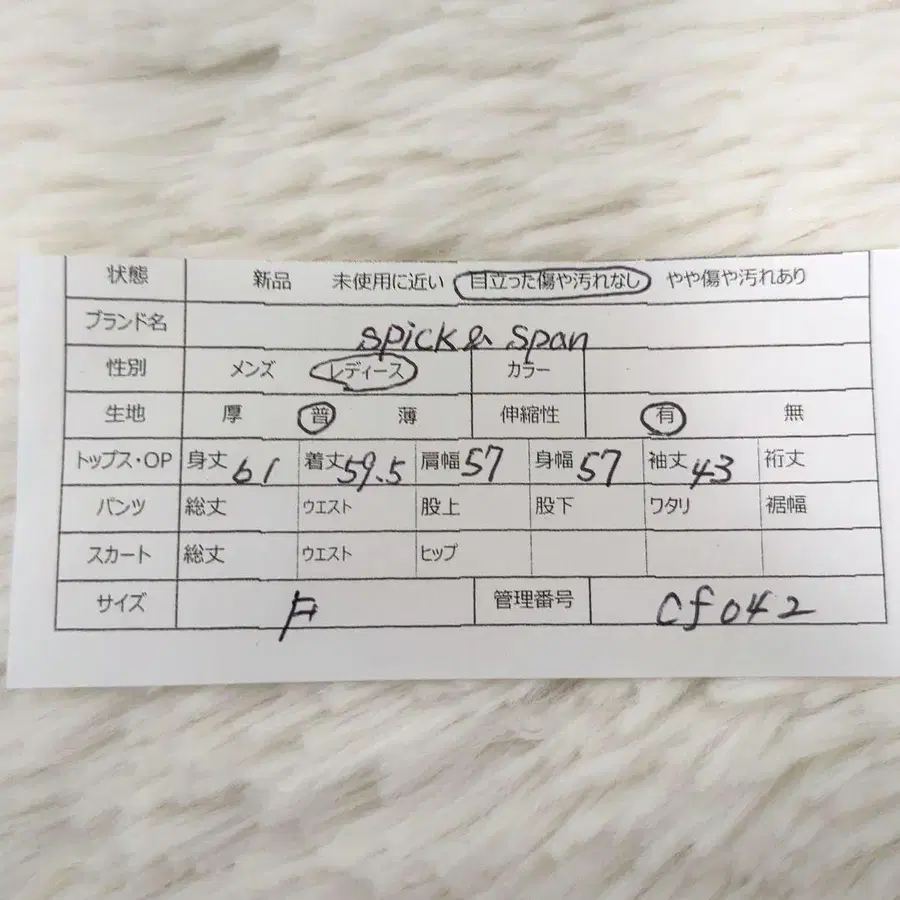 状態 新品 未使用に近い 目立った傷や汚れなし やや傷や汚れあり
ブランド名 spick & span
性別 メンズ レディース カラー
生地 厚 普 薄 伸縮性 有 無
トップス・OP 身丈 61 着丈 59.5 肩幅 57 身幅 57 袖丈 43 裄丈
パンツ 総丈 ウエスト 股上 股下 ワタリ 裾幅
スカート 総丈 ウエスト ヒップ
サイズ F 管理番号 cf042